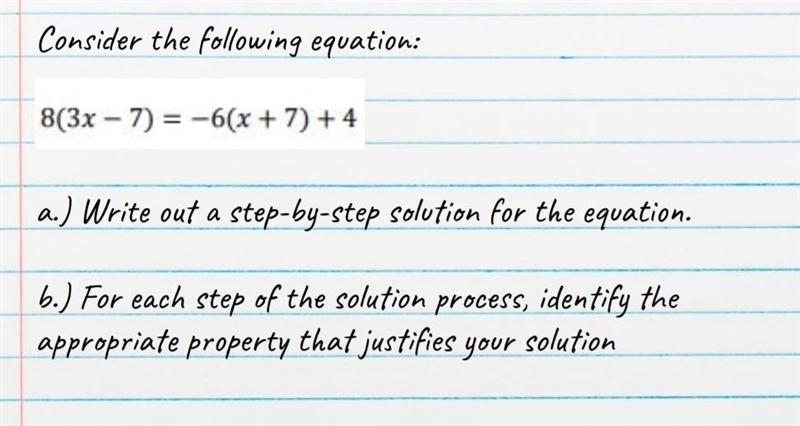 Consider the following equation:
8(3x – 7) = −6(x + 7) + 4
a.) Write out a step-by-step solution for the equation.
b.) For each step of the solution process, identify the
appropriate property that justifies your solution